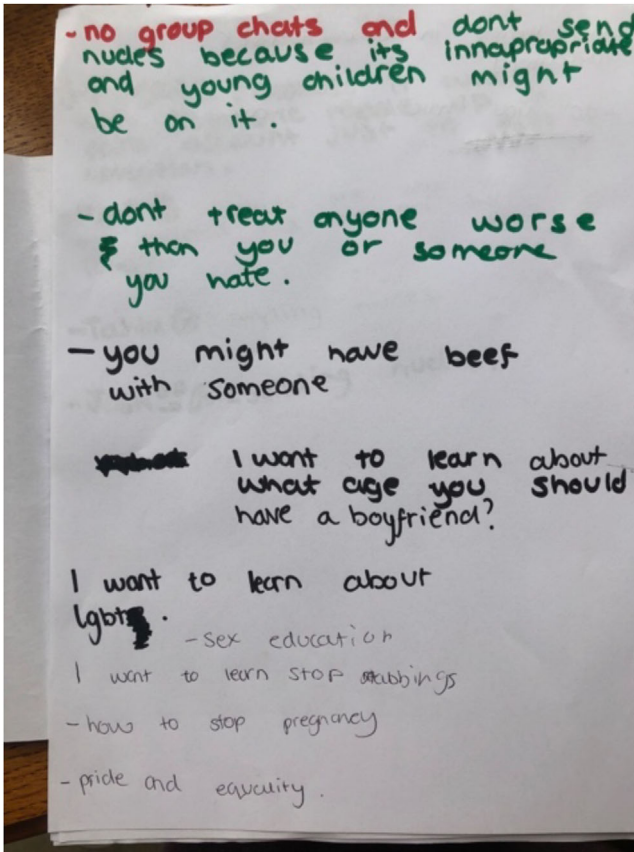 - no group chats and dont send
nudes because its innapropriate
and young children might
be on it.
- dont treat anyone worse
than you or someone
you hate.
- you might have beef
with someone
I want to learn about
what age you should
have a boyfriend?
I want to learn about
lgbt
- sex education
I want to learn stop stabbings
- how to stop pregnancy
- pride and equcuity.